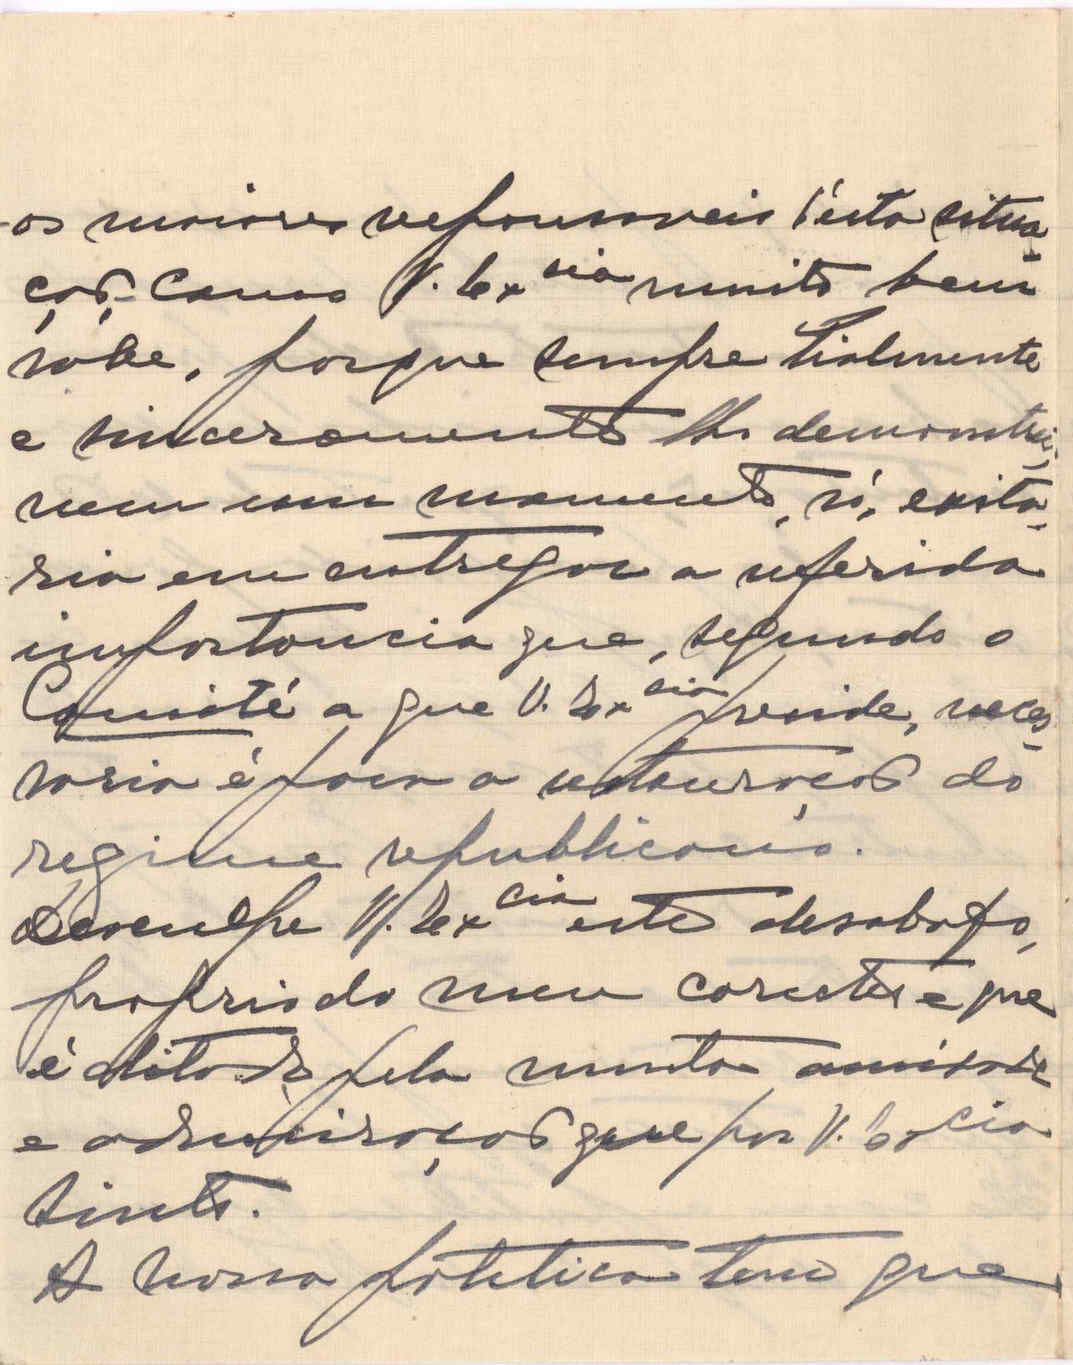 os maiores responsaveis d'esta situa-
ção. Como V. Ex cia muito bem
sabe, porque sempre lialmente
e sinceramente lh'o demonstrei,
nem um momento, só, exita-
ria em entregar a referida
importancia que, segundo o
Comité a que V. Ex cia preside, neces-
saria é para a restauração do
regime republicano.
Desculpe V. Ex cia este desabafo,
proprio do meu caracter e que
é ditado pela muita amizade
e admiração que por V. Ex cia
sinto.
A nossa politica tem que